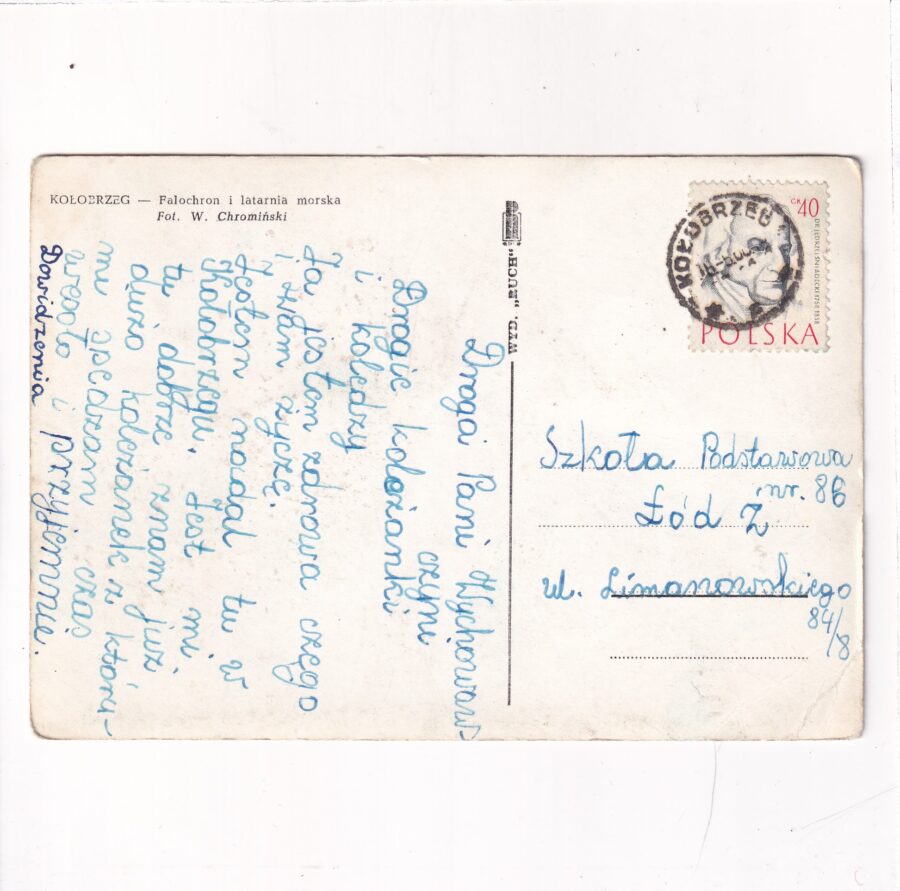 KOŁOBRZEG — Falochron i latarnia morska
Fot. W. Chromiński
Droga Pani Wychowaw-
czyni
Drogie koleżanki
i koledzy
Ja jestem zdrowa czego
i wam życzę.
Jestem nadal tu w
Kołobrzegu. Jest mi
tu dobrze znam już
dużo koleżanek z która-
mi spędzam czas
wesoło i przyjemnie.
Dowidzenia
WYD. "RUCH"
GR 40
POLSKA
KOŁOBRZEG
Szkoła Podstawowa
nr. 86
Łódź
ul. Limanowskiego
84/8